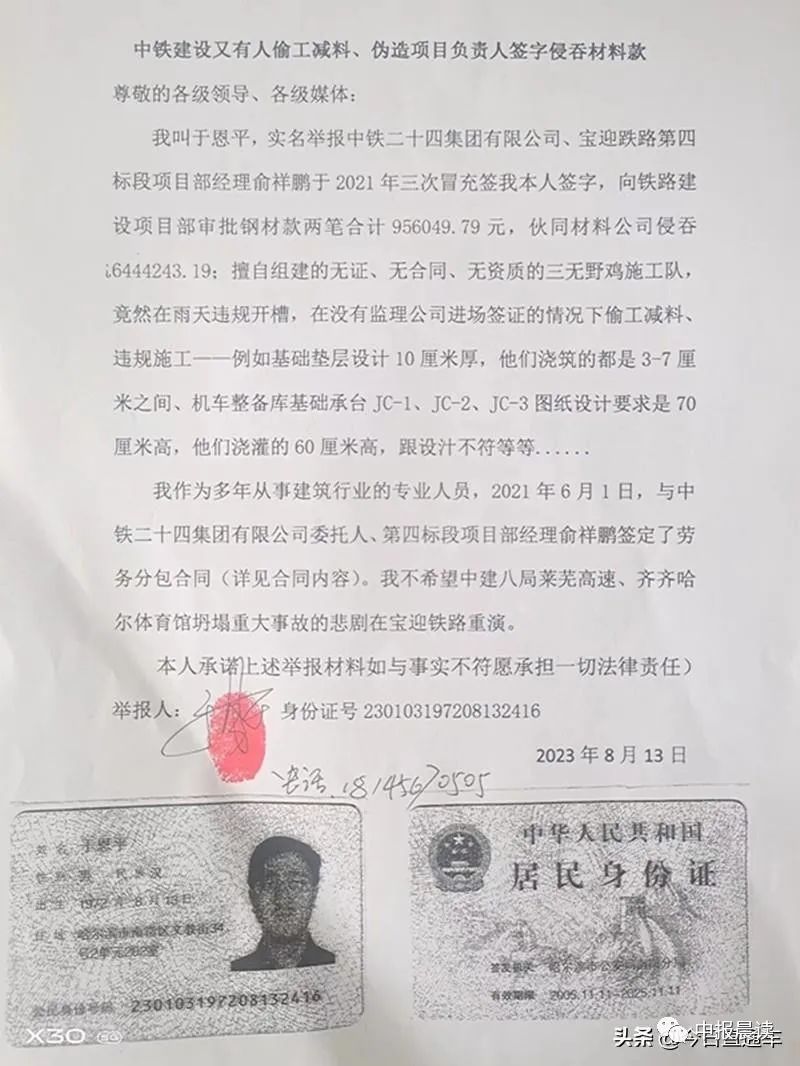 中铁建设又有人偷工减料、伪造项目负责人签字侵吞材料款
尊敬的各级领导、各级媒体：
我叫于恩平，实名举报中铁二十四集团有限公司、宝迎跌路第四
标段项目部经理俞祥鹏于 2021 年三次冒充签我本人签字，向铁路建
设项目部审批钢材款两笔合计 956049.79 元，伙同材料公司侵吞
6444243.19；擅自组建的无证、无合同、无资质的三无野鸡施工队，
竟然在雨天违规开槽，在没有监理公司进场签证的情况下偷工减料、
违规施工——例如基础垫层设计 10 厘米厚，他们浇筑的都是 3-7 厘
米之间、机车整备库基础承台 JC-1、JC-2、JC-3 图纸设计要求是 70
厘米高，他们浇灌的 60 厘米高，跟设汁不符等等......
我作为多年从事建筑行业的专业人员，2021 年 6 月 1 日，与中
铁二十四集团有限公司委托人、第四标段项目部经理俞祥鹏签定了劳
务分包合同（详见合同内容）。我不希望中建八局莱芜高速、齐齐哈
尔体育馆坍塌重大事故的悲剧在宝迎铁路重演。
本人承诺上述举报材料如与事实不符愿承担一切法律责任）
举报人： 身份证号 230103197208132416
2023 年 8 月 13 日
电话 18145670505
姓名 于恩平
性别 男 民族 汉
出生 1972 年 8 月 13 日
住址 哈尔滨市南岗区文 街34
号2单元202室
公民身份号码 230103197208132416
中华人民共和国
居民身份证
签发机关 哈尔滨市公安局南岗分局
有效期限 2005.11.11-2025.11.11
X30 5G
中报晨读
头条 @今日直通车